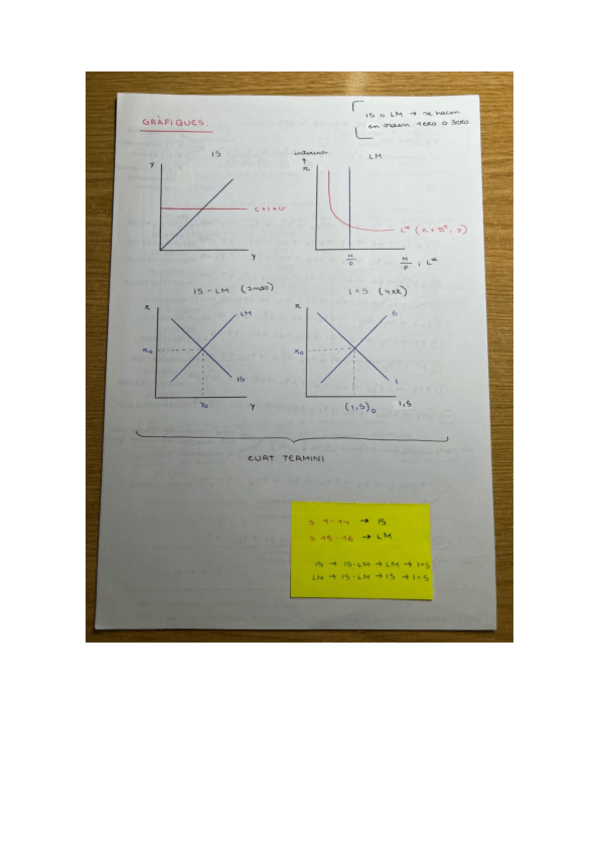 GRÀFIQUES.
IS o LM → se hacen
en orden 1ero o 3ero.
IS
Y
C+I+G
Y
LM
r
M/P
M/P ; Lᵈ
Lᵈ (r+πᵉ, Y)
IS-LM (2ndo)
r
LM
r₀
IS
Y₀
Y
I=S (4rt)
r
S
r₀
I
(I,S)₀
I,S
CURT TERMINI
S 1-14 → IS
S 15-16 → LM
IS → IS-LM → LM → I=S
LM → IS-LM → IS → I=S